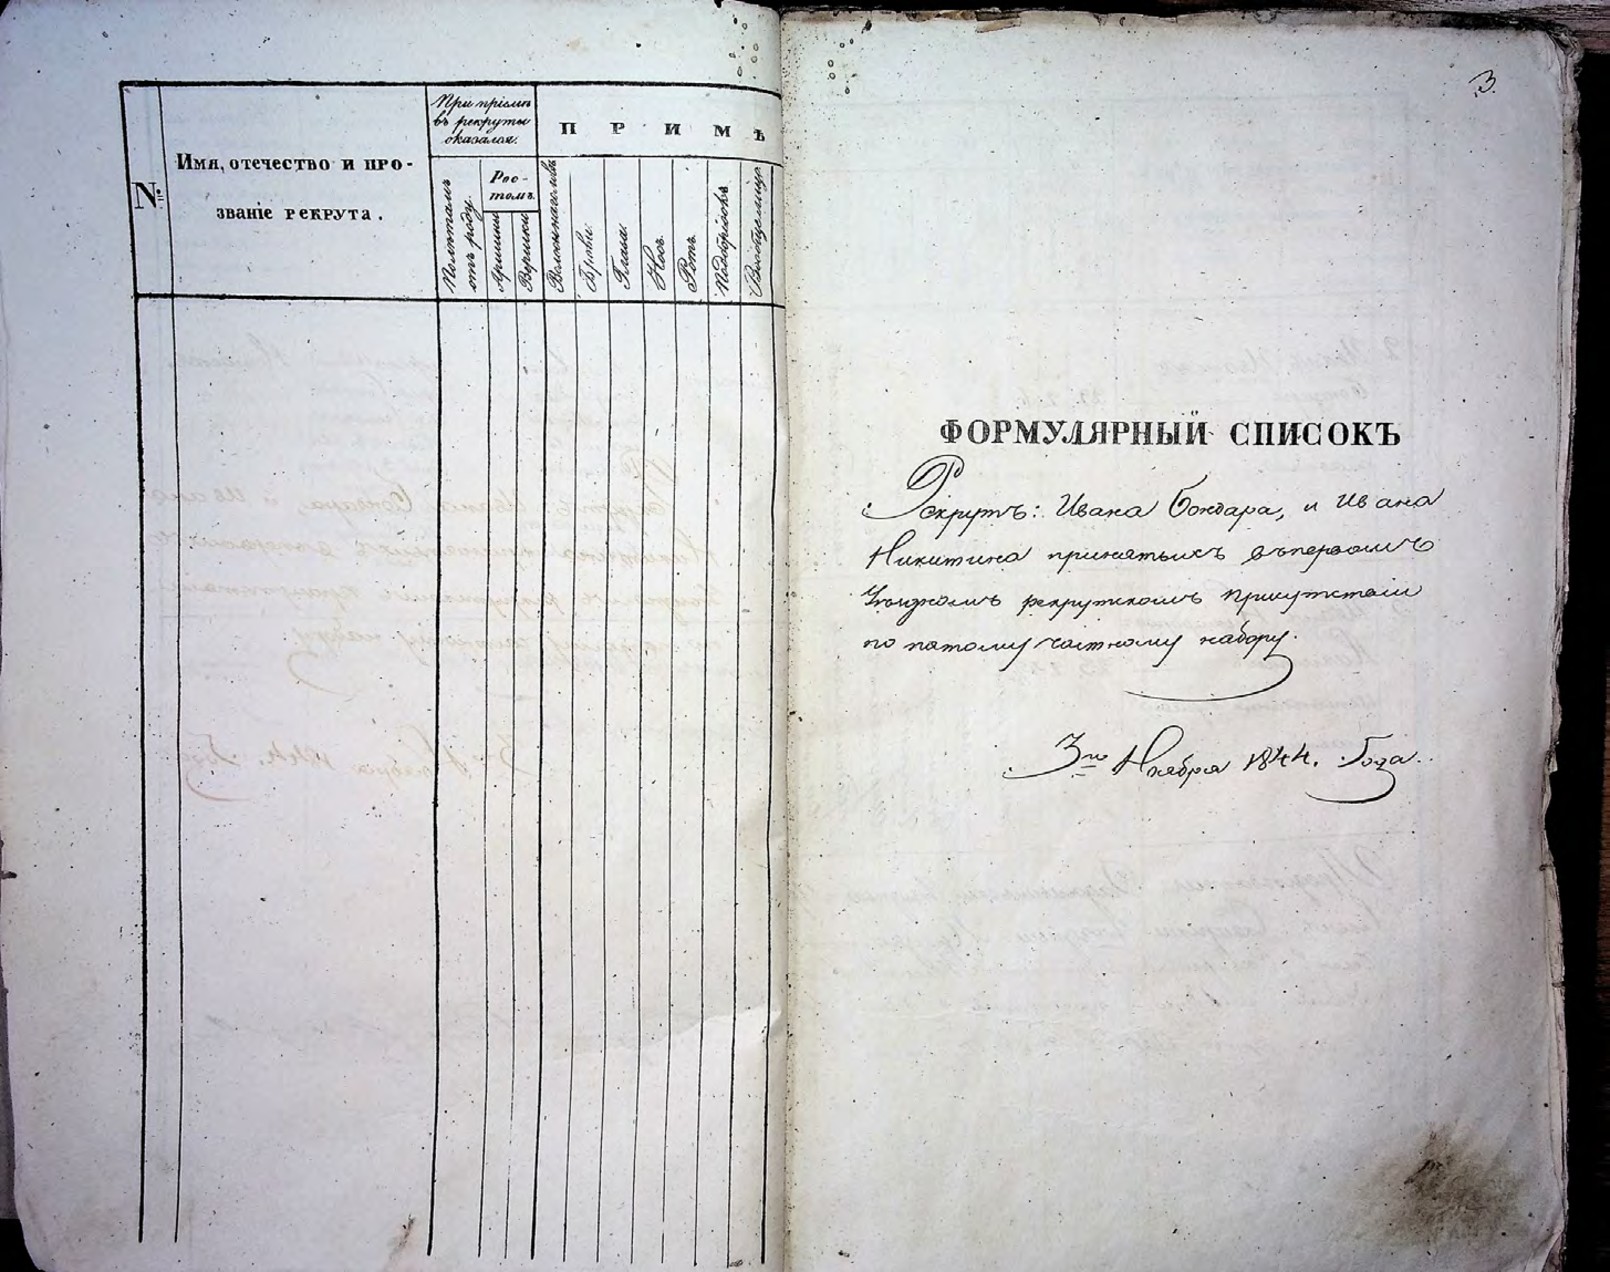 №
Имя, отечество и про-
званіе рекрута.
При пріемѣ
въ рекруты
оказался.
Лѣтамъ
отъ роду.
Рос-
томъ.
Аршины
Вершки
ПРИМѢ
Волосы на головѣ
Брови.
Глаза.
Носъ.
Ротъ.
Подбородокъ
Вообще лице
3.
ФОРМУЛЯРНЫЙ СПИСОКЪ
Рекрутъ: Ивана Бондара, и Ивана
Никитина принятыхъ въ первомъ
Уѣздномъ рекрутскомъ Присутствіи
по пятому частному набору.
3го Ноября 1844. Года.